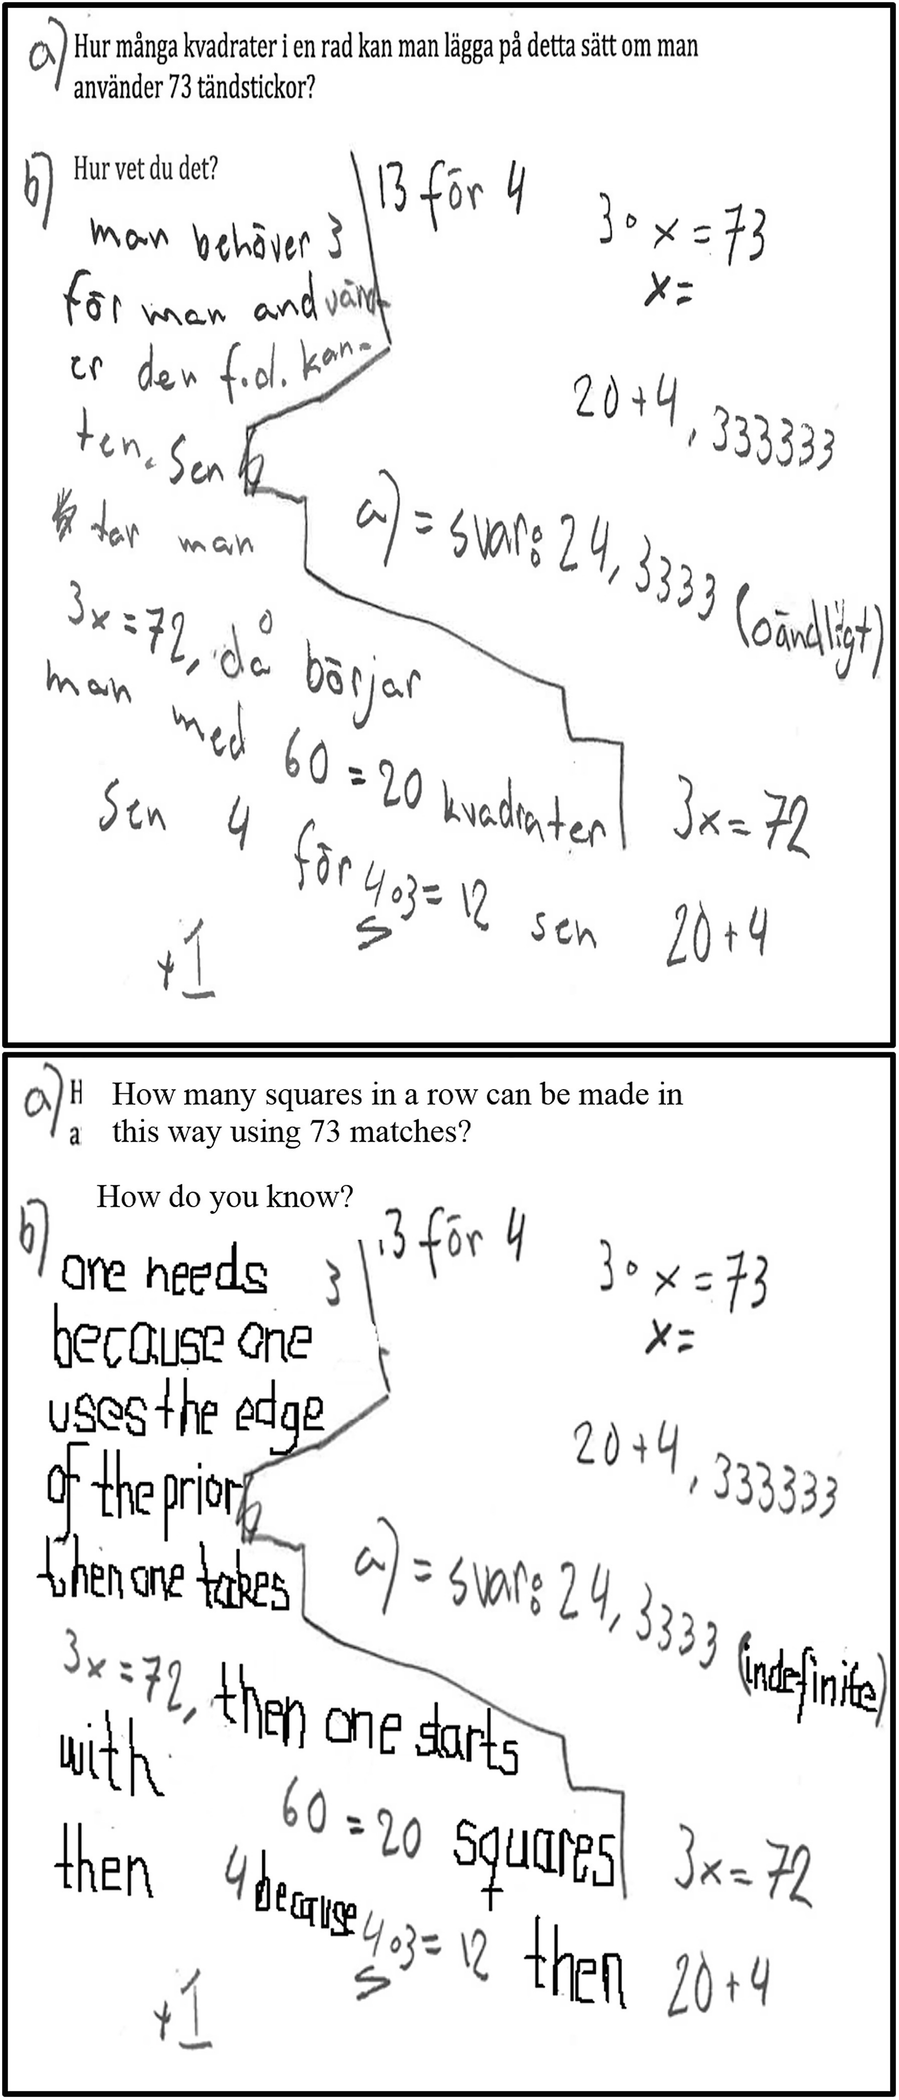 a) Hur många kvadrater i en rad kan man lägga på detta sätt om man
använder 73 tändstickor?
b) Hur vet du det?
man behöver 3
för man andvänd
er den f.d. kan-
ten. Sen
tar man
3x=72, då börjar
man med 60 = 20 kvadrater
Sen 4 för 4∘3= 12 sen
+1
13 för 4
3∘x=73
x=
20+4,333333
a) = svar: 24,3333 (oändligt)
3x=72
20+4
a) H How many squares in a row can be made in
a this way using 73 matches?
How do you know?
b) one needs 3
because one
uses the edge
of the prior
then one takes
3x=72, then one starts
with 60 = 20 squares
then 4 because 4∘3= 12 then
+1
.3 för 4
3∘x=73
x=
20+4,333333
a) = svar: 24,3333 (indefinite)
3x=72
20+4